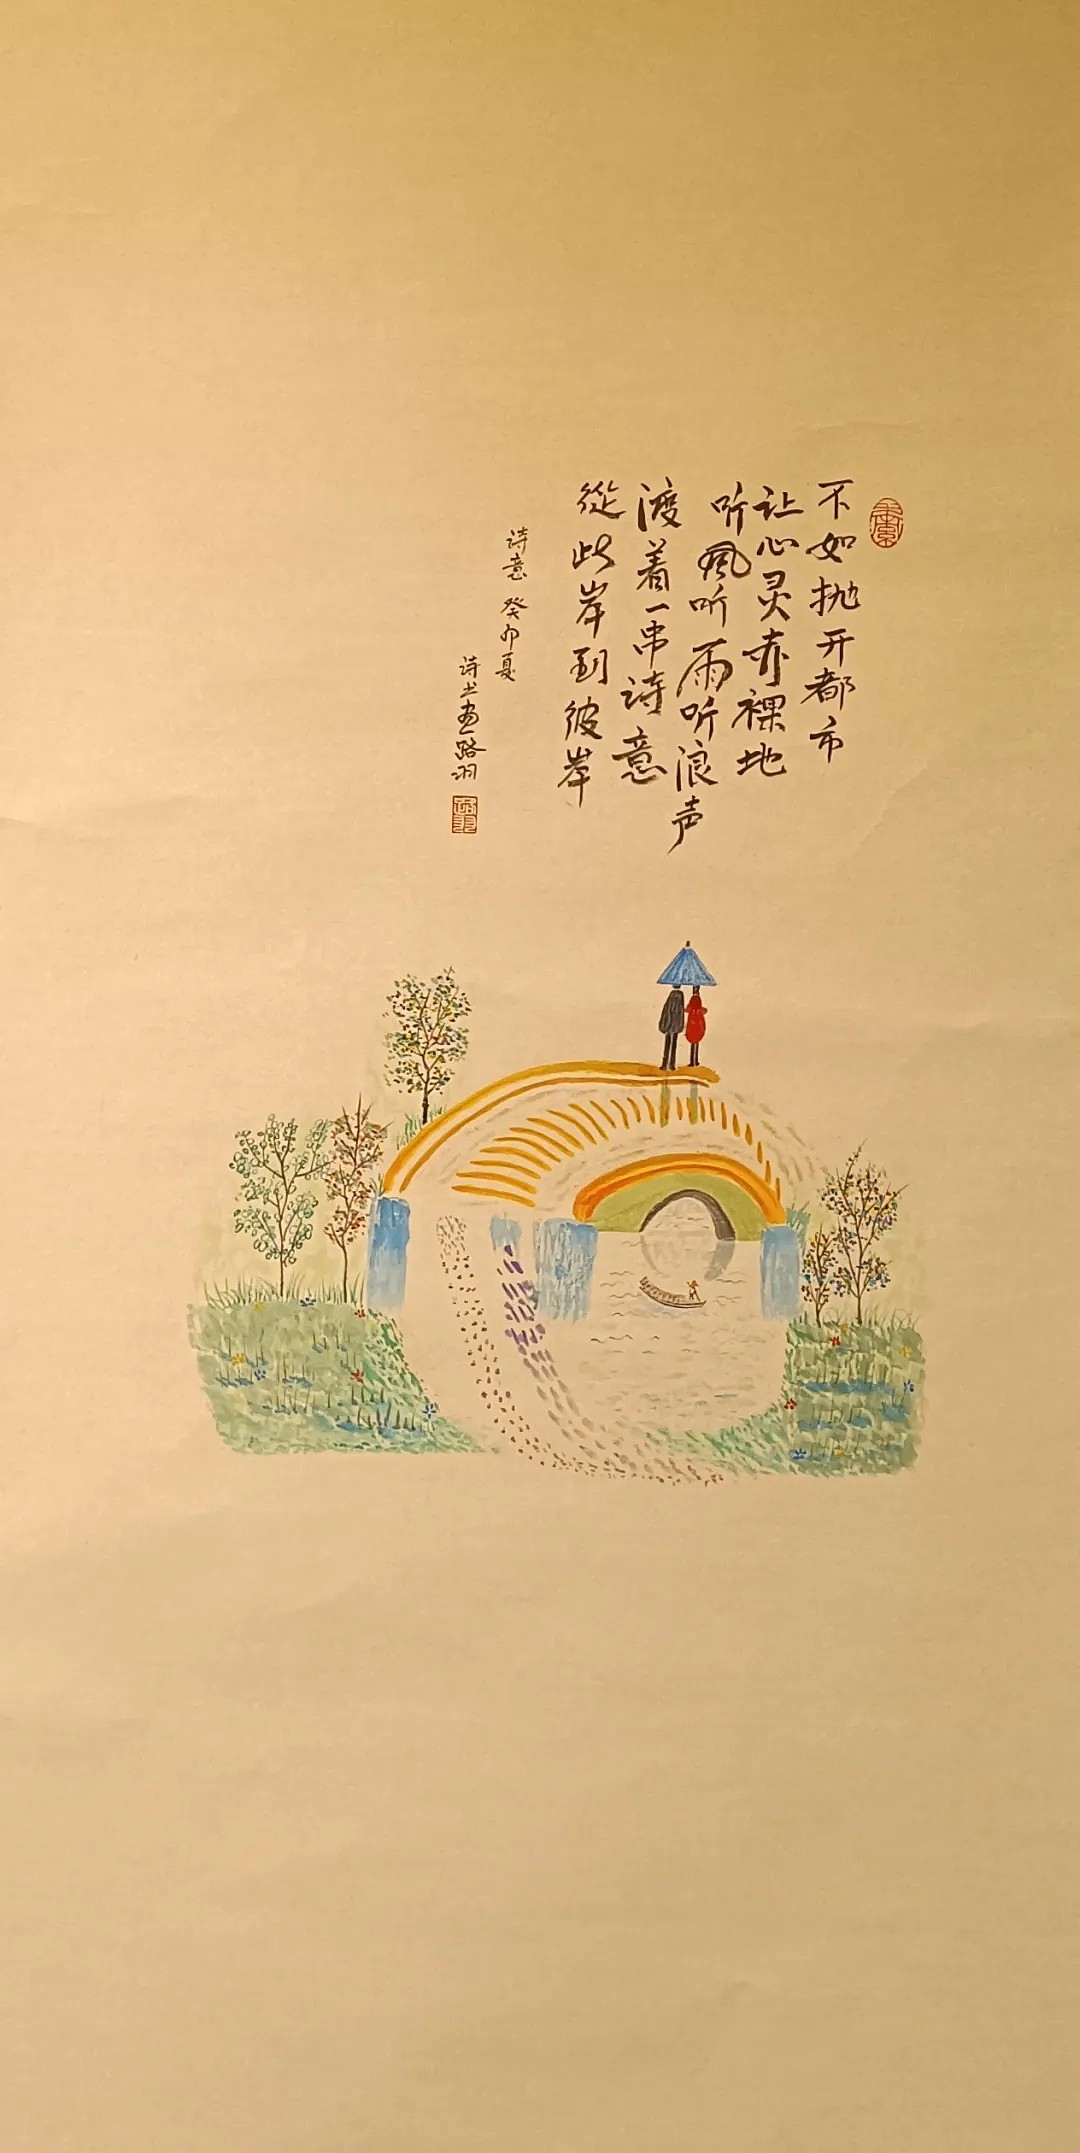 不如抛开都市
让心灵赤裸地
听风听雨听浪声
渡着一串诗意
從此岸到彼岸
诗意 癸卯夏
诗书画路羽
路羽